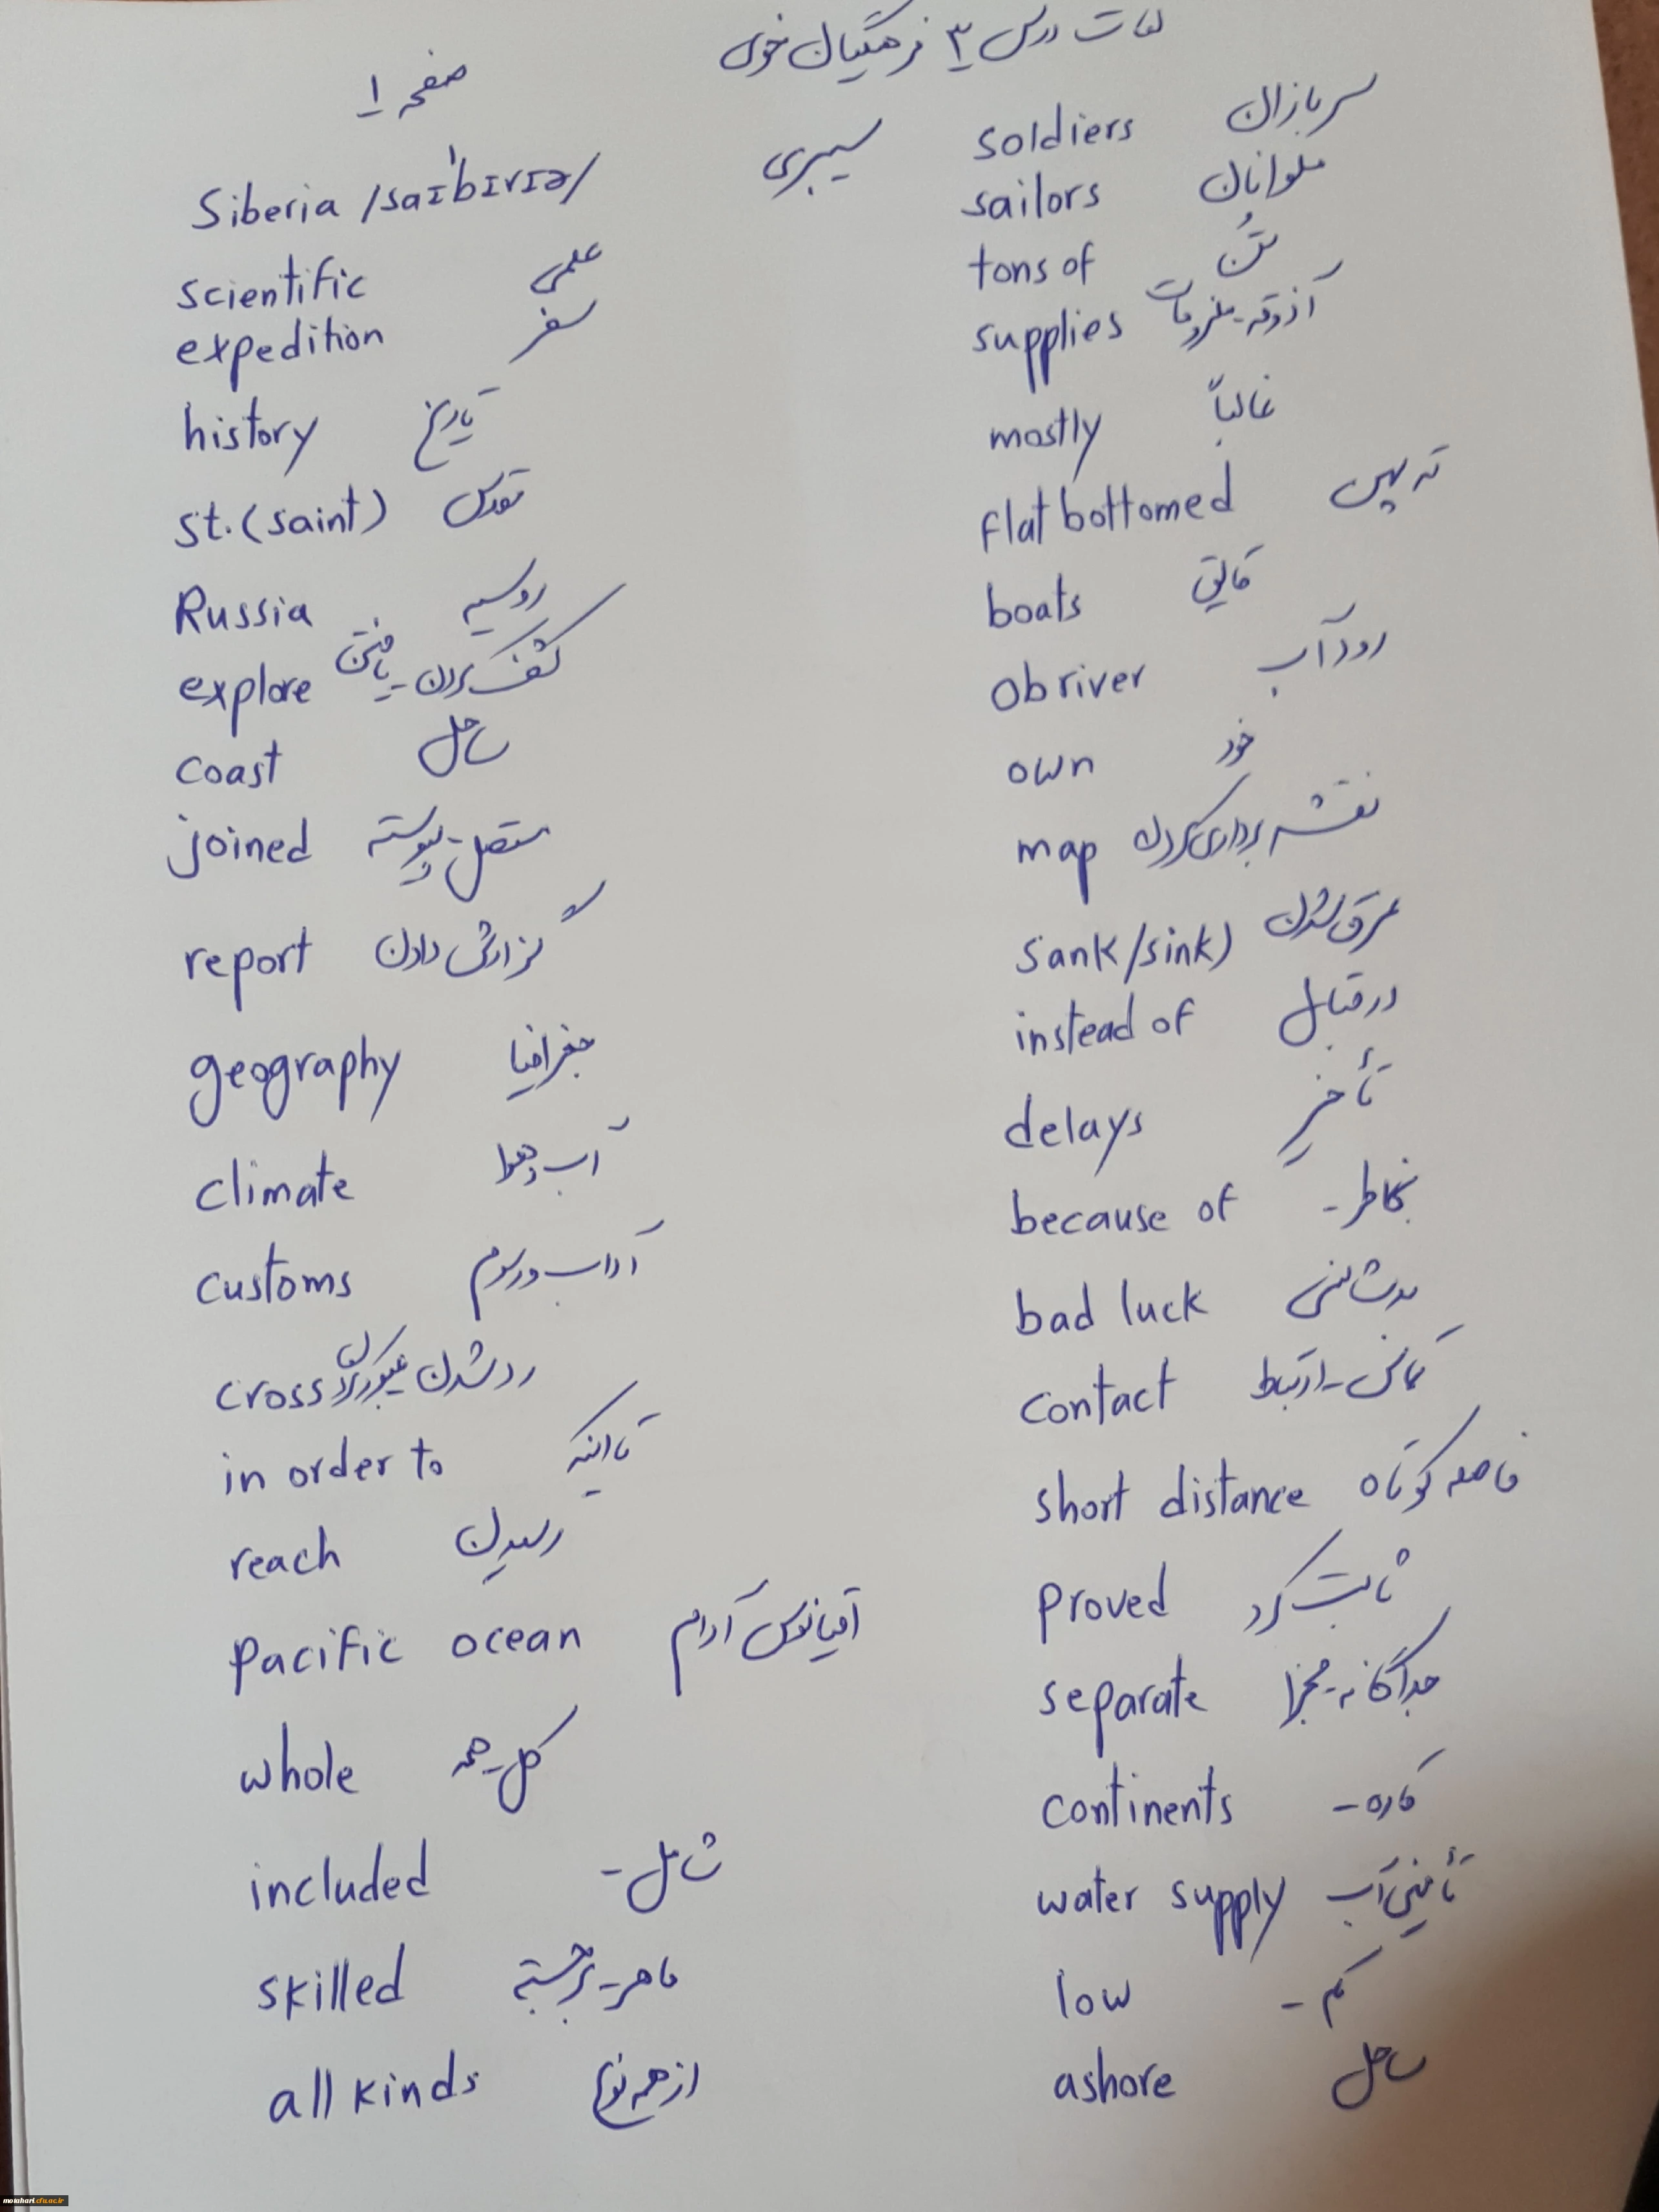 لغات درس ۳ فرهنگیان خوی
صفحه ۱
Siberia /saɪˈbɪrɪə/ سیبری
scientific علمی
expedition سفر
history تاریخ
st. (saint) تقدس
Russia روسیه
explore کشف کردن - یافتن
coast ساحل
joined متصل - پیوسته
report گزارش دادن
geography جغرافیا
climate آب و هوا
customs آداب و رسوم
cross رد شدن عبور کردن
in order to تا اینکه
reach رسیدن
pacific ocean اقیانوس آرام
whole کل - همه
included شامل -
skilled ماهر - برجسته
all kinds از همه نوع
soldiers سربازان
sailors ملوانان
tons of تُن
supplies آذوقه - ملزومات
mostly غالباً
flat bottomed ته پهن
boats قایق
Ob river رود آب
own خود
map نقشه برداری کردن
sank/sink) غرق شدن
instead of در قبال
delays تأخیر
because of بخاطر -
bad luck بدشانسی
contact تماس - ارتباط
short distance فاصله کوتاه
proved ثابت کرد
separate جداگانه - مجزا
continents قاره -
water supply تأمین آب
low کم -
ashore ساحل
motahari.cfu.ac.ir